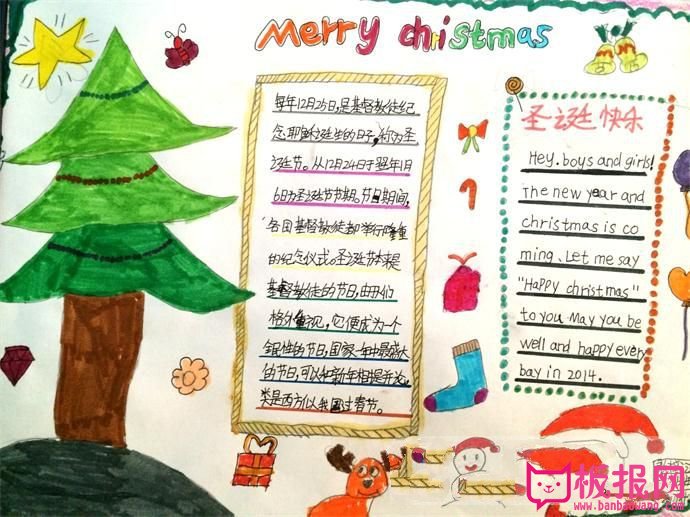 Merry christmas
每年12月25日,是基督教徒纪
念耶稣诞生的日子,称为圣
诞节。从12月24日于翌年1月
6日为圣诞节节期。节日期间,
各国基督教徒都举行隆重
的纪念仪式。圣诞节本来是
基督教徒的节日,由于们
格外重视,它便成为一个
全民性的节日,国家一年中最盛大
的节日,可以和新年相提并论,
类是西方以我国过春节。
圣诞快乐
Hey. boys and girls!
The new year and
christmas is co
ming. Let me say
"Happy christmas"
to you May you be
well and happy every
bay in 2014.
板报网
www.banbaowang.com